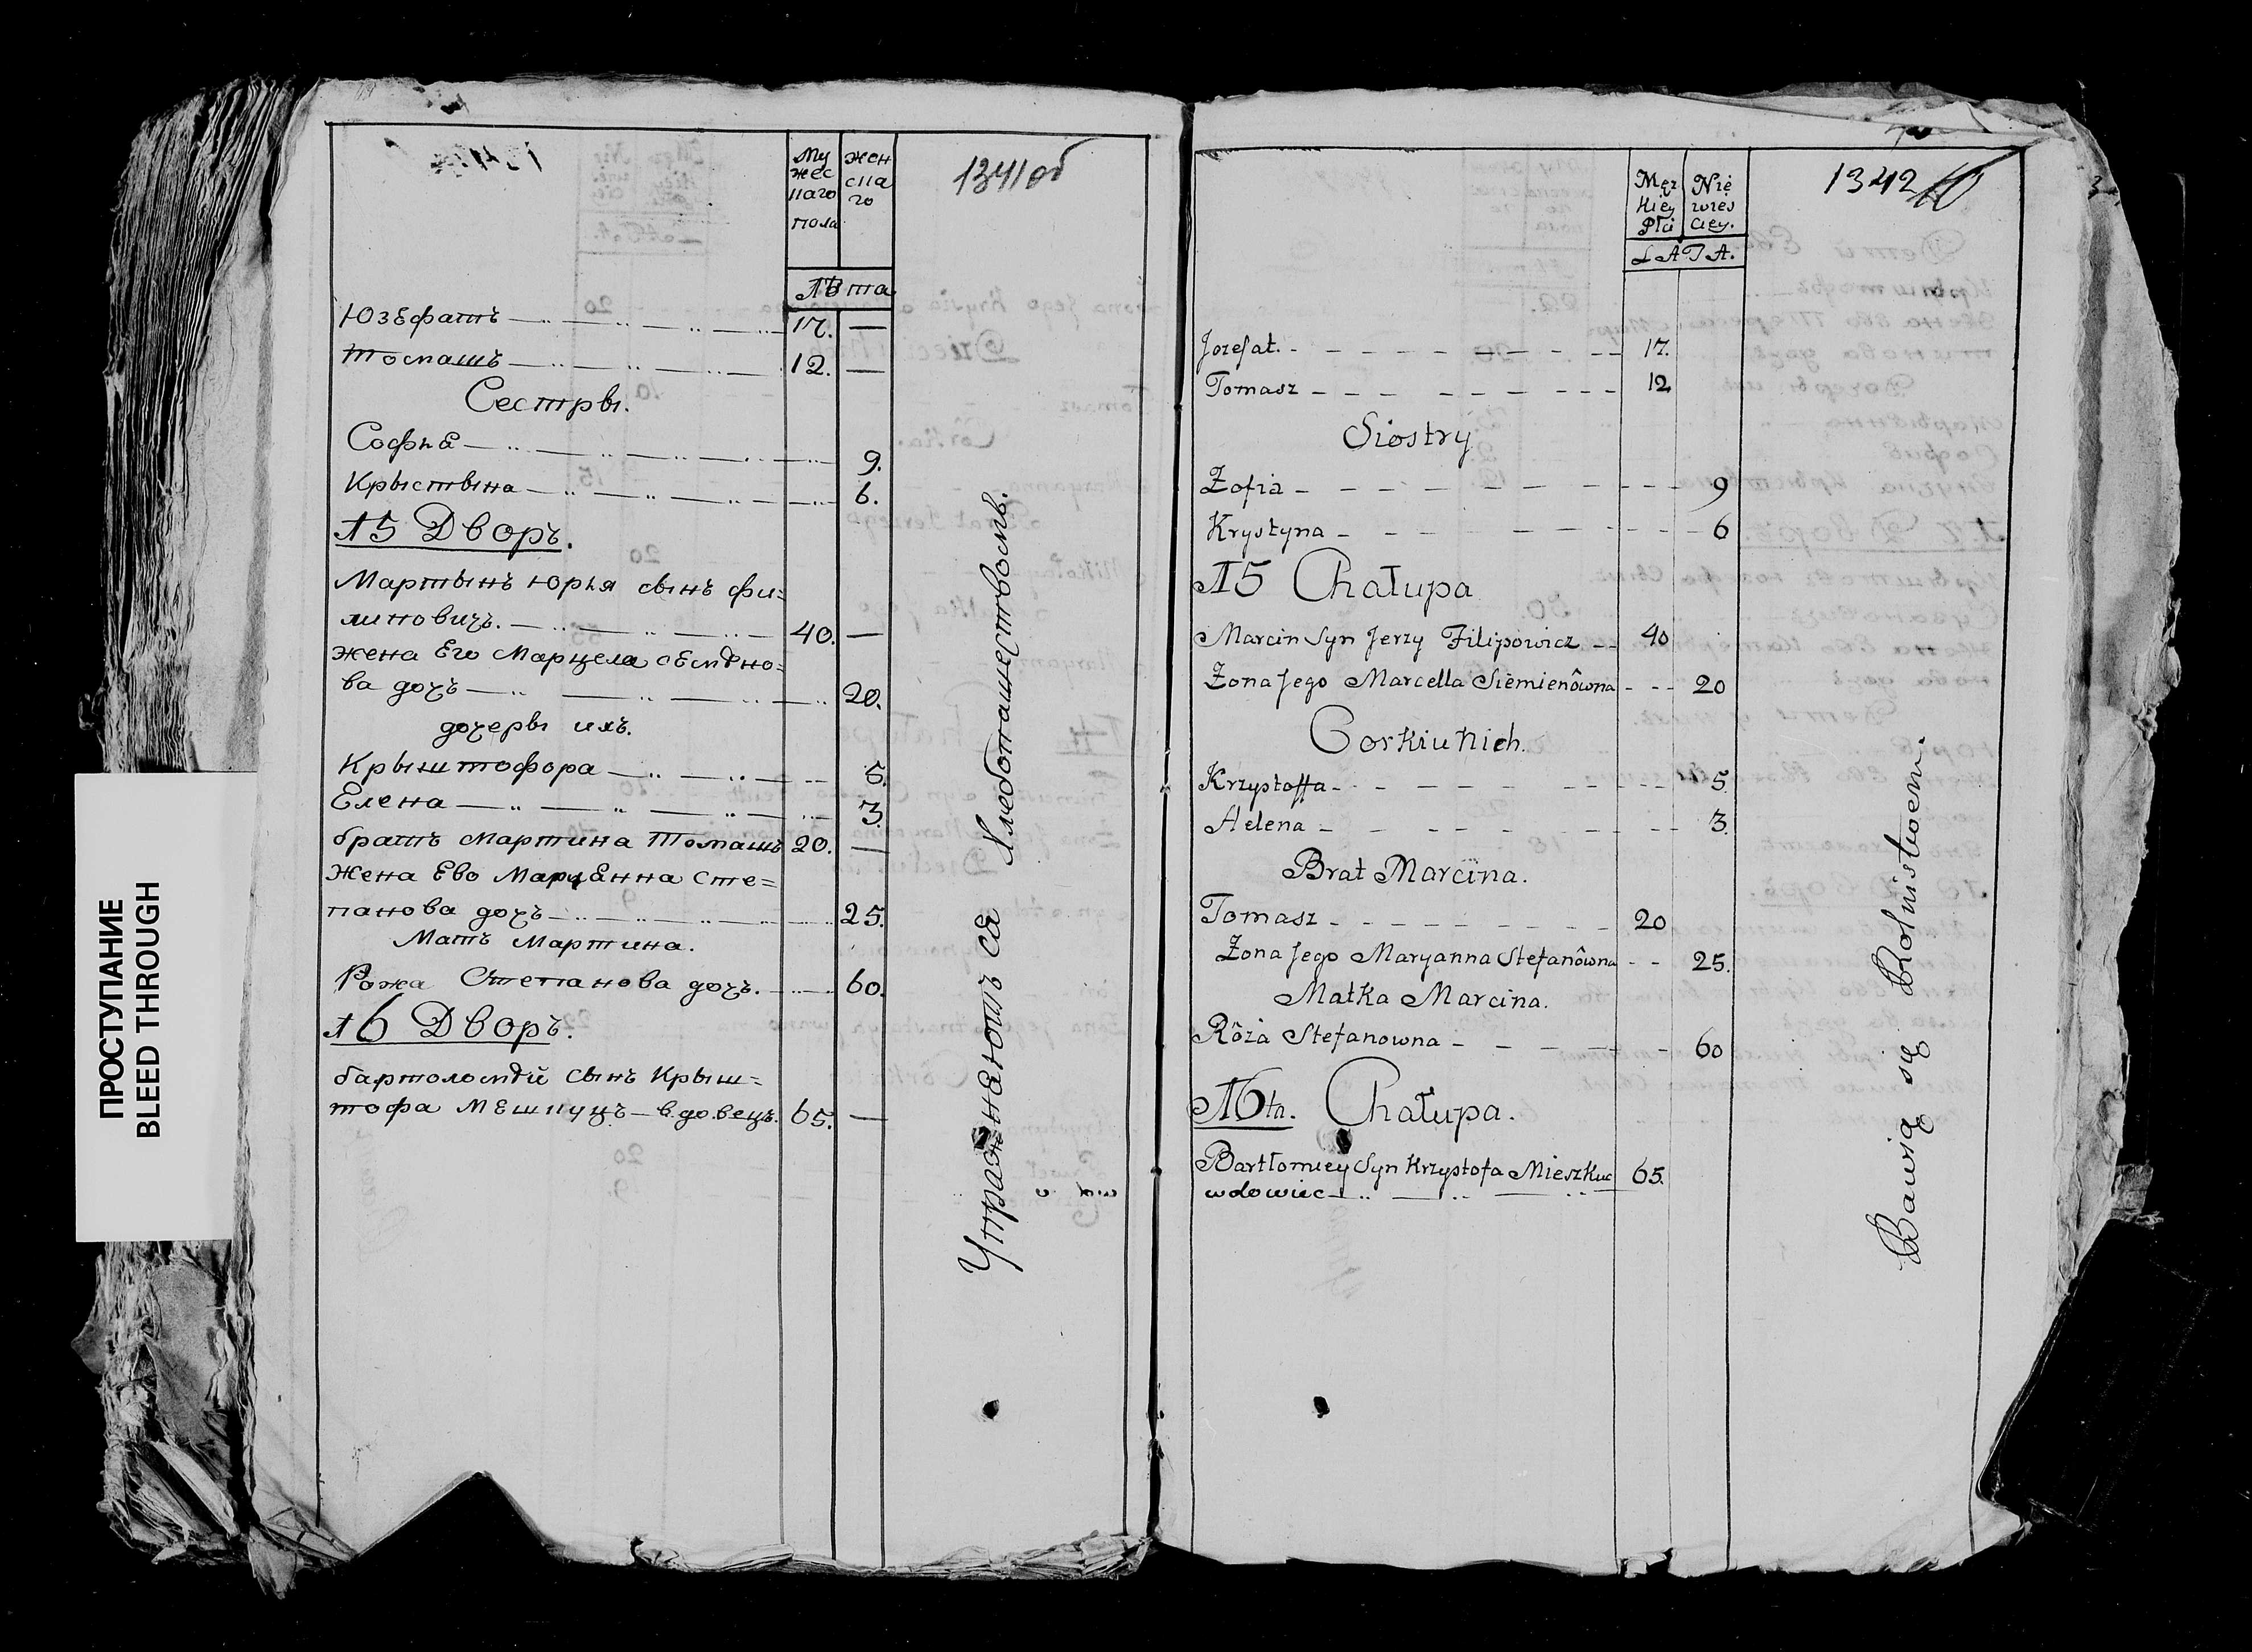 ПРОСТУПАНИЕ
BLEED THROUGH
1341 об
Му жен
жес ска
каго го
пола
Лѣта
Юзефатъ 17. —
Томашъ 12. —
Сестры.
Софья 9.
Крыстына 6.
15 Дворъ.
Мартынъ Юрья сынъ фи=
липовичъ. 40. —
жена Его Марцела семѣно=
ва дочь 20.
дочеры ихъ.
Крыштофора 5.
Елена 3.
братъ Мартина Томашъ 20. —
Жена Ево Марцянна Сте=
панова дочь 25.
Мать Мартина.
Рожа Степанова дочь. 60.
16 Дворъ.
бартоломѣй сынъ Крыш=
тофа Мешкуцъ — вдовецъ. 65. —
Упражняютъ ся Хлебопашествомъ.
1342
Męz Nie
kiey wies
Płci ciey.
LATA.
Jozefat. 17.
Tomasz 12
Siostry
Zofia 9
Krystyna 6
15 Chałupa
Marcin Syn Jerzy Filipowicz 40
Zona Jego Marcella Siemienôwna 20
Corki u nich.
Krzystoffa 5
Helena 3.
Brat Marcina.
Tomasz 20
Zona Jego Maryanna Stefanôwna 25.
Matka Marcina.
Rôża Stefanowna 60
16ta. Chałupa.
Bartłomiey Syn Krzysztofa Mieszkuc 65.
wdowiec
Bawią się Rolnistwem.